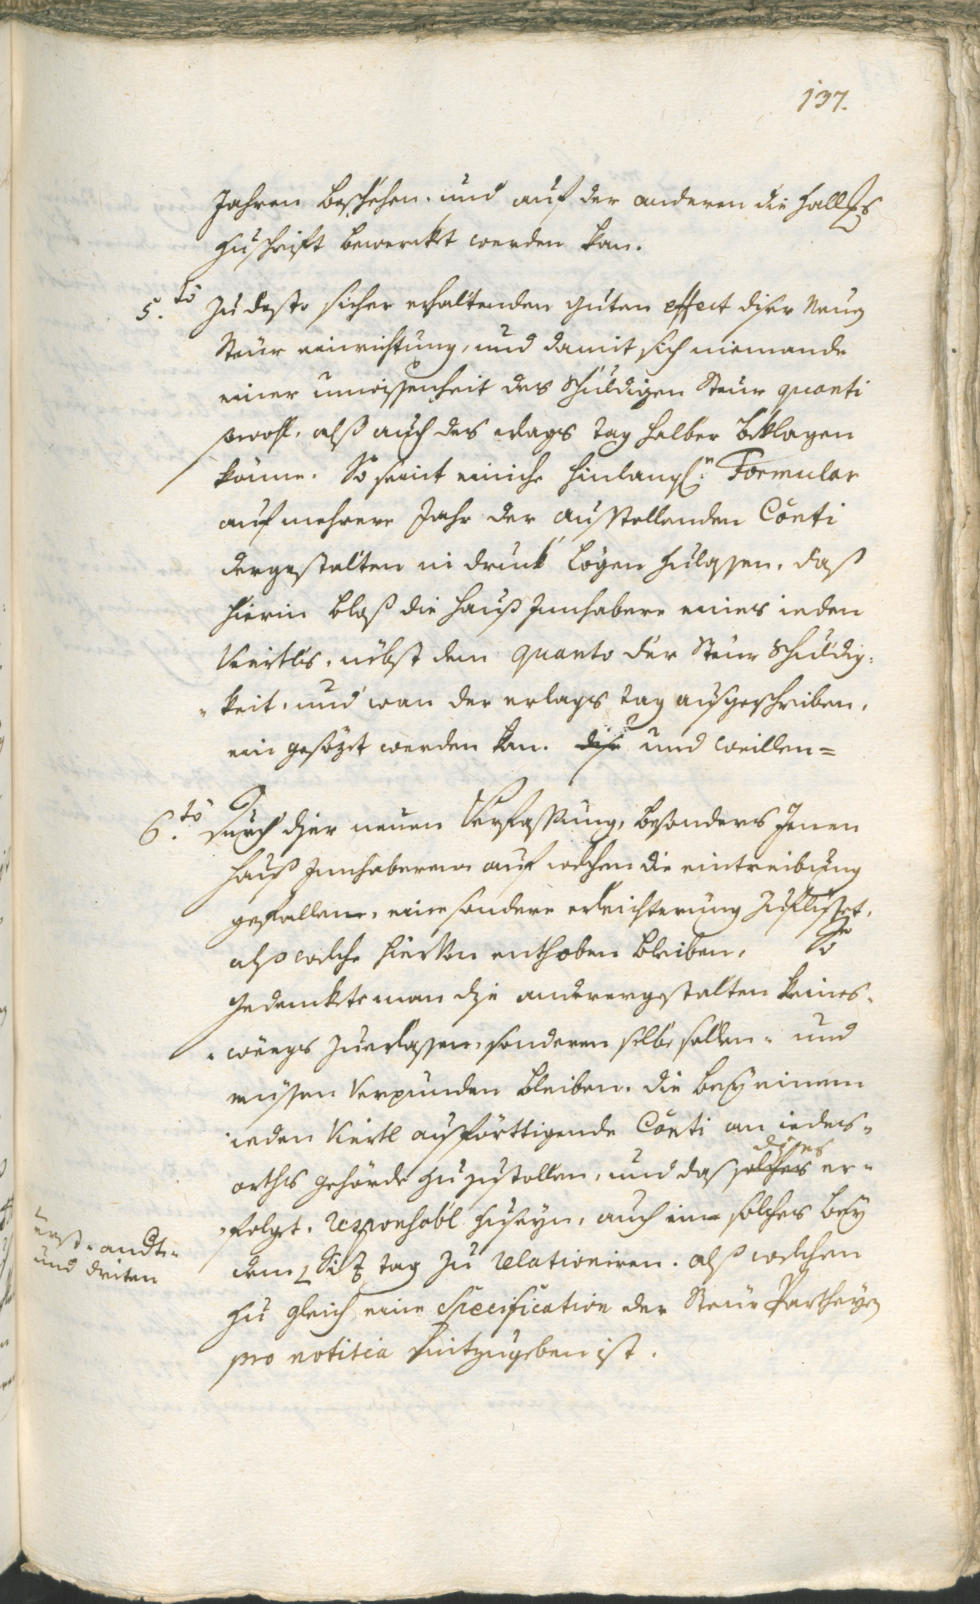 137.
Jahren beschehen. und auf der anderen die
zuschrifft bemerckt werden kan.
5.to Zu desto sicher erhaltenden guten effect diser Neuen
Steur einrichtung, und damit sich niemande
einer unwissenheit des schuldigen Steur quanti
sowohl, alß auch des erlags tag halber beklagen
könne. So seint einiche hinlängl: Formular
auf mehrere Jahr der ausstellenden Conti
dergestalten in druck legen zulassen, daß
hierin bloß die Hauß Innhabere eines ieden
Viertls, nebst dem quanto der Steur Schuldig-
-keit, und wan der erlags tag ausgeschriben,
ein gesözt werden kan. dise und weillen=
6.to Durch diser neuen Verfassung, besonders Jenen
Hauß Innhaberen auf welchen die eintreibung
gefallen, eine sondere erleichterung zufliesset,
also welche hiervon enthoben bleiben, So
gedenckte man dise anderergestalten keines-
-weegs zuerlassen, sonderen selbe sollen- und
müssen verpunden bleiben. die bey einem
ieden Viertl ausförttigende Conti an iedes-
orths gehörde zuzustellen, und daß solches dises er-
-folgt. responsabl zuseyn, auch ein solches bey
dem Siz tag zu relationiren. alß welchem
erst- andt-
und driten
zu gleich eine Specification der Steur Partheyen
pro notitia hintzugeben ist.